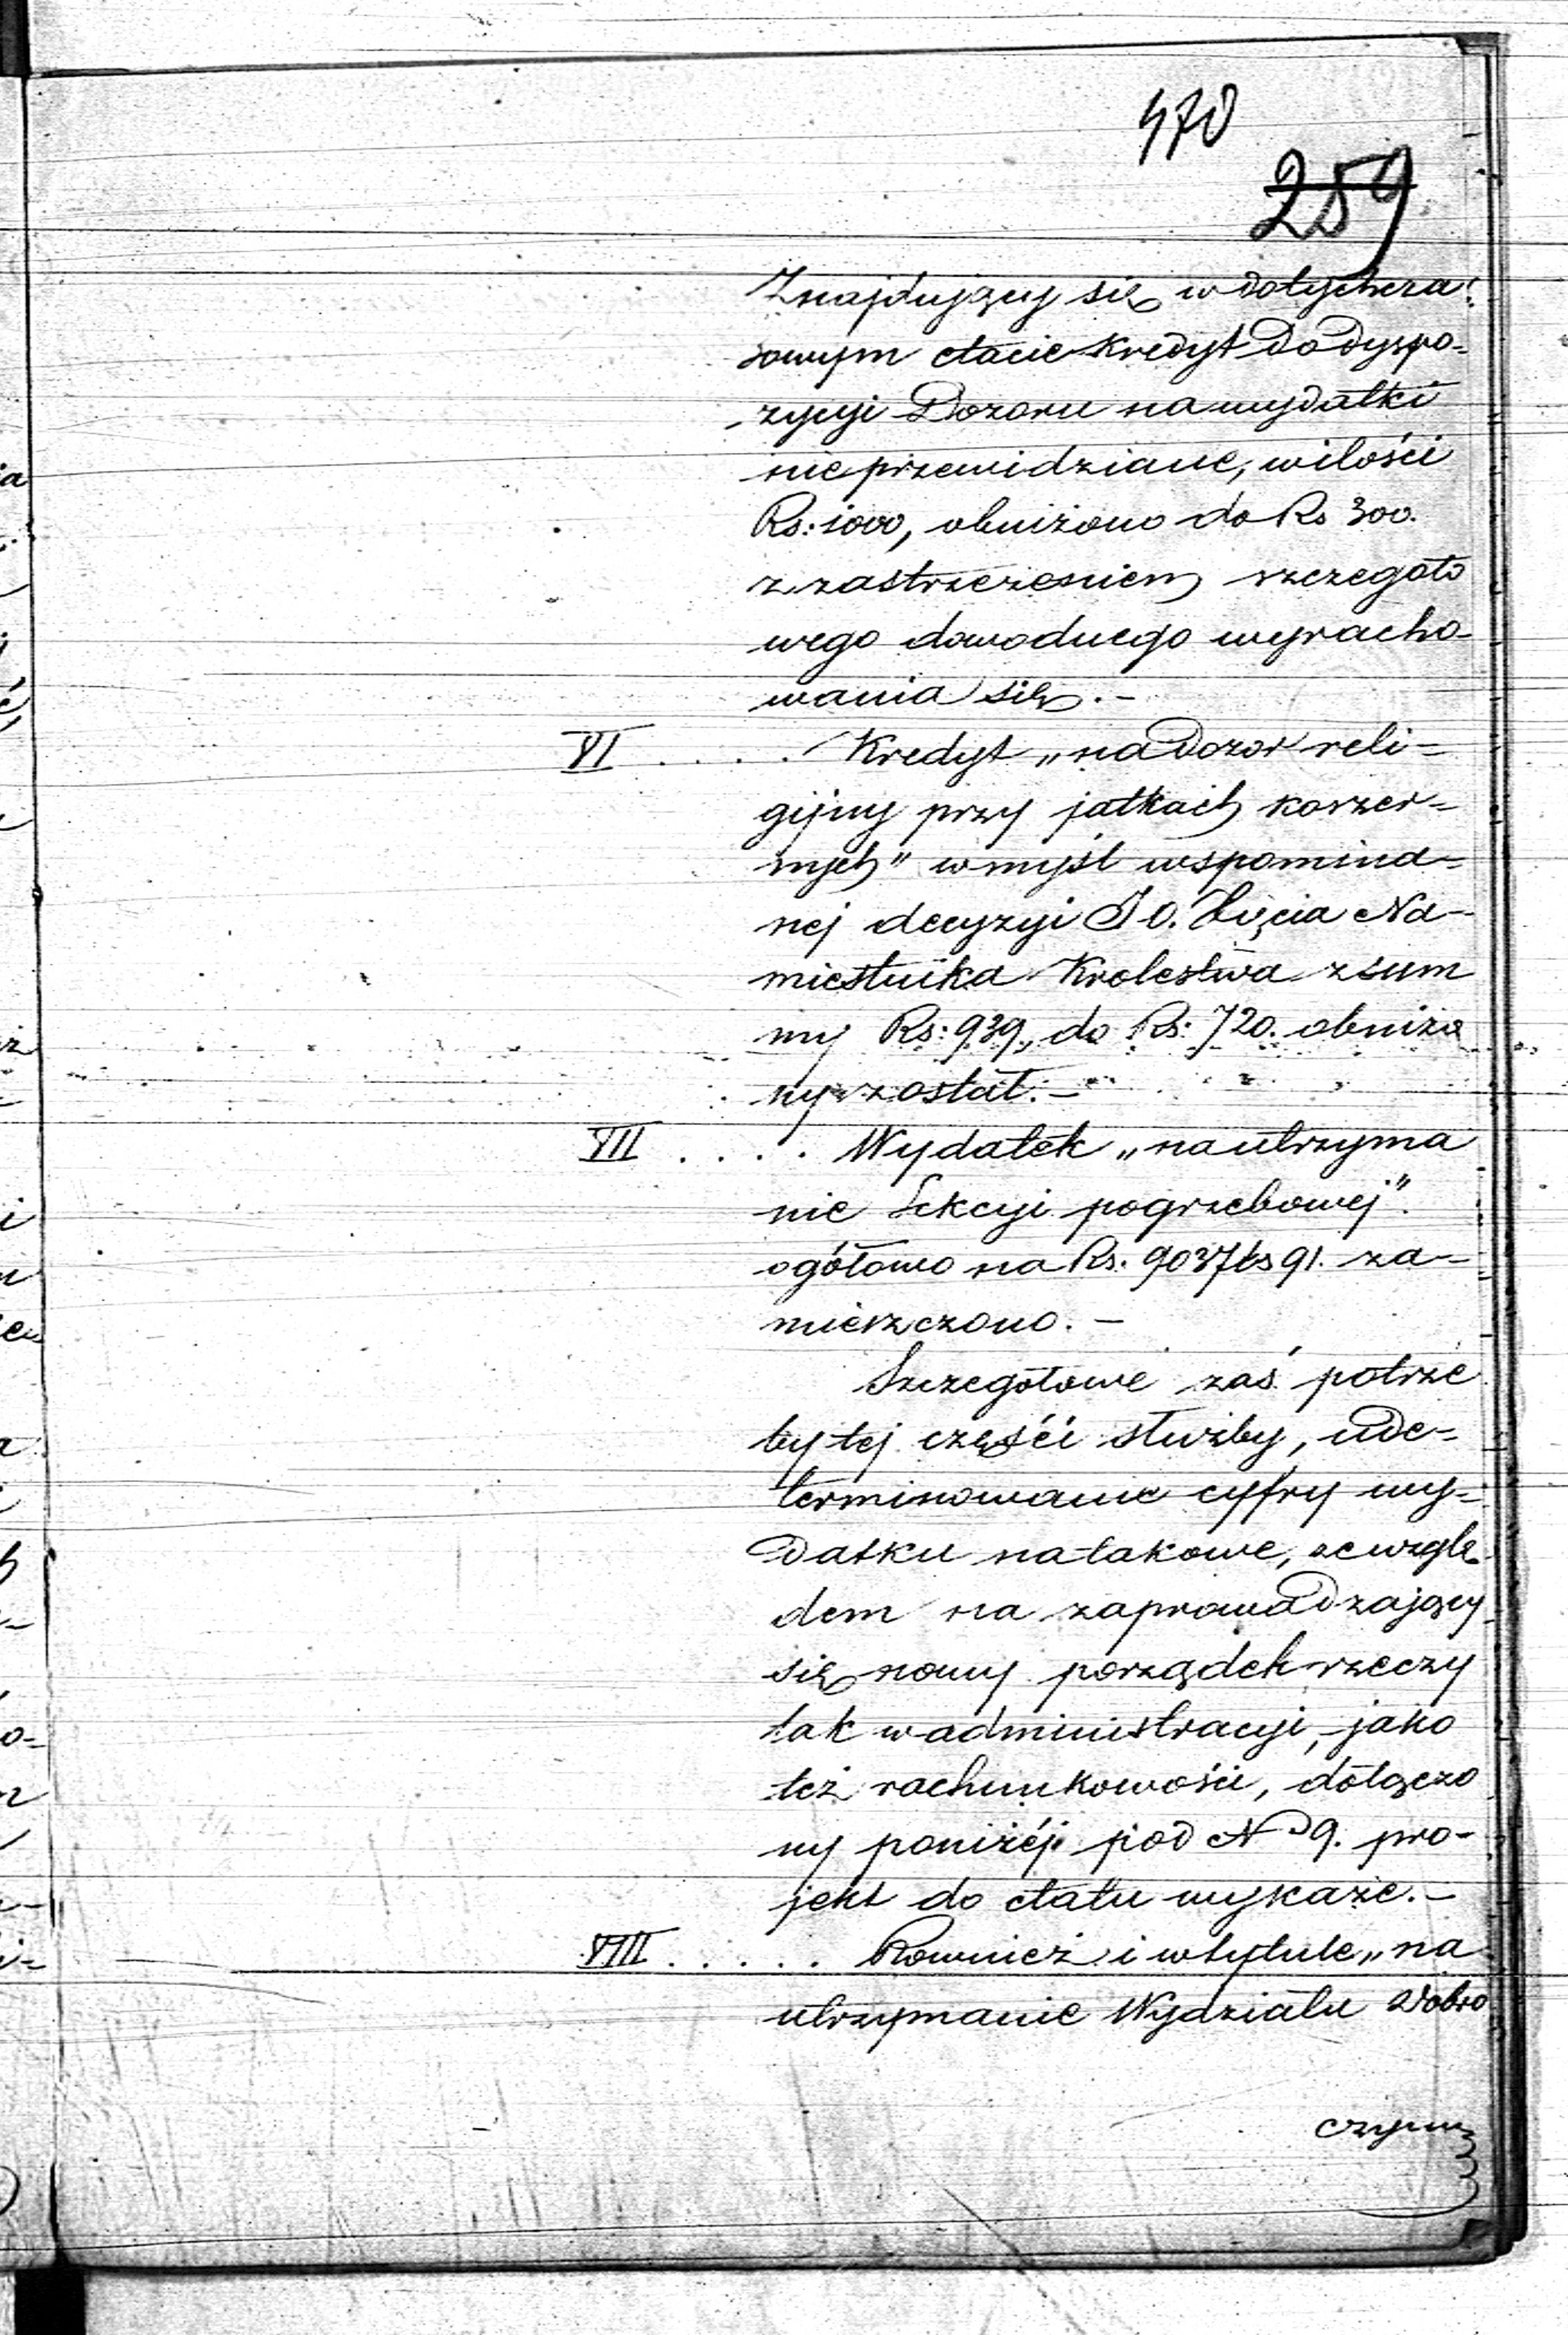 470
259
Znajdujący się w dotychcza-
sowym etacie kredyt do dyspo-
zycyi Dozoru na wydatki
nieprzewidziane, wilości
Rs: 1000, obniżono do Rs 300.
z zastrzeżeniem szczegóło
wego dowodnego wyracho-
wania się. -
VI . . . . . Kredyt „na Dozór reli-
gijny przy jatkach koszer-
nych" w myśl wspomina-
nej decyzyi J O. Xięcia Na-
miestnika Krolestwa z sum
my Rs: 939, do Rs: 720. obniżo
ny został. -
VII . . . . Wydatek „na utrzyma
nie Sekcyi pogrzebowej".
ogółowo na Rs. 9037 ks 91. za-
mieszczono. -
Szczegółowe zaś potrze
by tej części służby, ude-
terminowanie cyfry wy-
datku na takowe, ze wzglę
dem na zaprowadzający
się nowy porządek rzeczy
tak w administracyi, jako
też rachunkowości, dołączo
ny poniżéj pod No 9. pro-
jekt do etatu wykaże. -
VIII . . . . . Rownież i w tytule „na
utrzymanie Wydziału dobro
czynn